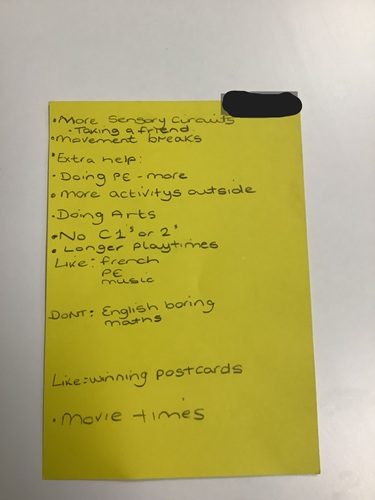 • More Sensory Circuits
• Taking a friend
• Movement breaks
• Extra help:
• Doing PE - more
• more activitys outside
• Doing Arts
• No C1's or 2's
• Longer playtimes
Like: french
PE
music
DONT: English boring
maths
Like: winning postcards
• Movie times